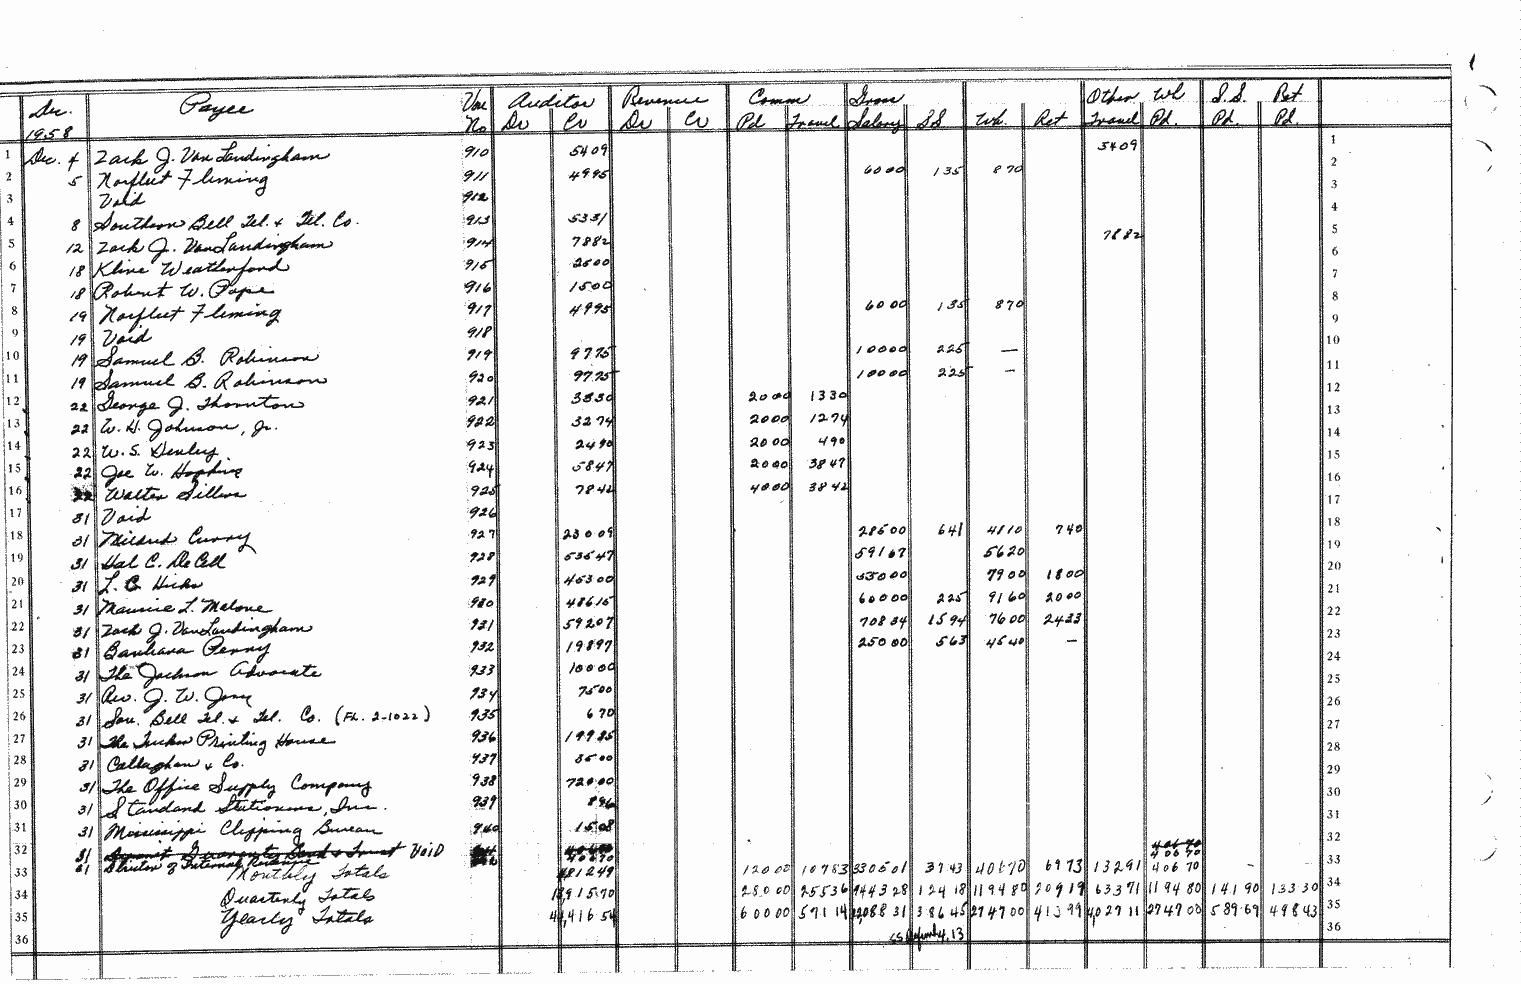 Dec. 1958 Payee Vou No Auditor Dr Cr Revenue Dr Cr Comm Pd Travel Gross Salary SS Wh. Ret Other Travel Wh Pd. S.S. Pd. Ret Pd
1 Dec. 4 Zack J. Van Landingham 910 5409 5409 1
2 5 Norfleet Fleming 911 4995 6000 135 870 2
3 Void 912 3
4 8 Southern Bell Tel. & Tel. Co. 913 5331 4
5 12 Zack J. Van Landingham 914 7882 7882 5
6 18 Kline Weatherford 915 2500 6
7 18 Robert W. Pope 916 1500 7
8 19 Norfleet Fleming 917 4995 6000 135 870 8
9 19 Void 918 9
10 19 Samuel B. Robinson 919 9775 10000 225 — 10
11 19 Samuel B. Robinson 920 9775 10000 225 — 11
12 22 George J. Thornton 921 3330 2000 1330 12
13 22 W. H. Johnson, Jr. 922 3274 2000 1274 13
14 22 W. S. Henley 923 2490 2000 490 14
15 22 Joe W. Hopkins 924 5847 2000 3847 15
16 22 Walter Sillers 925 7842 4000 3842 16
17 31 Void 926 17
18 31 Mildred Curry 927 23009 28500 641 4110 740 18
19 31 Hal C. DeCell 928 53547 59167 5620 19
20 31 L. C. Hicks 929 45300 55000 7900 1800 20
21 31 Maurice L. Malone 930 48615 60000 225 9160 2000 21
22 31 Zack J. Van Landingham 931 59207 70834 1594 7600 2433 22
23 31 Barbara Perry 932 19897 25000 563 4540 — 23
24 31 The Jackson Advocate 933 10000 24
25 31 Rev. J. W. Jones 934 7500 25
26 31 Sou. Bell Tel. & Tel. Co. (FL. 2-1022) 935 670 26
27 31 The Tucker Printing House 936 19985 27
28 31 Callaghan & Co. 937 3500 28
29 31 The Office Supply Company 938 72000 29
30 31 Standard Stationers, Inc. 939 896 30
31 31 Mississippi Clipping Bureau 940 1508 31
32 31 Deposit Guaranty Bank & Trust VOID 40670 40670 32
31 Director of Internal Revenue 40670 40670
33 Monthly Totals 481249 12000 10783 330501 3743 40670 6973 13291 40670 33
34 Quarterly Totals 1391570 28000 25536 944328 12418 119480 20919 63371 119480 14190 13330 34
35 Yearly Totals 44,416.54 60000 57114 38645 274700 41399 402711 274700 589.69 49843 35
36 SS Refund 4.13 36